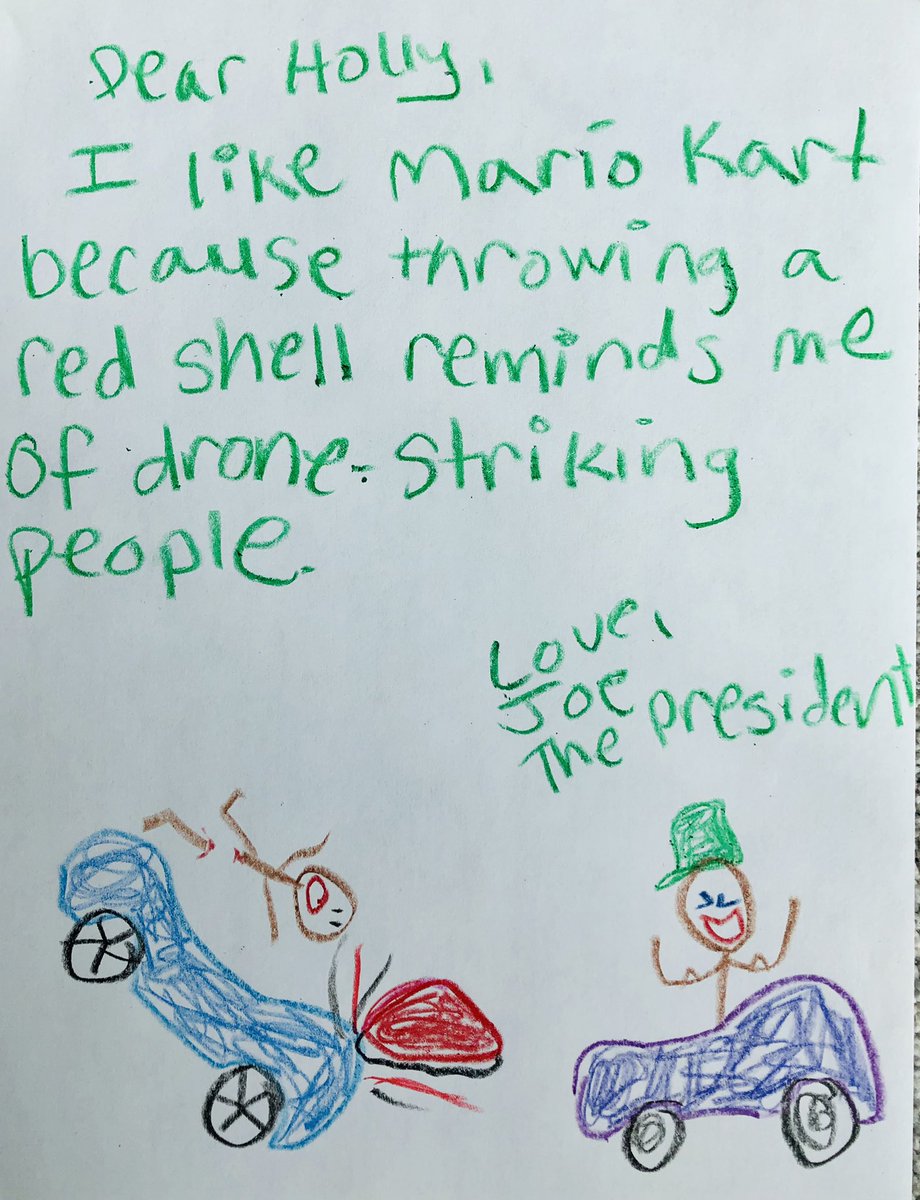 Dear Holly,
I like Mario Kart
because throwing a
red shell reminds me
of drone-striking
people.
Love,
Joe
The president